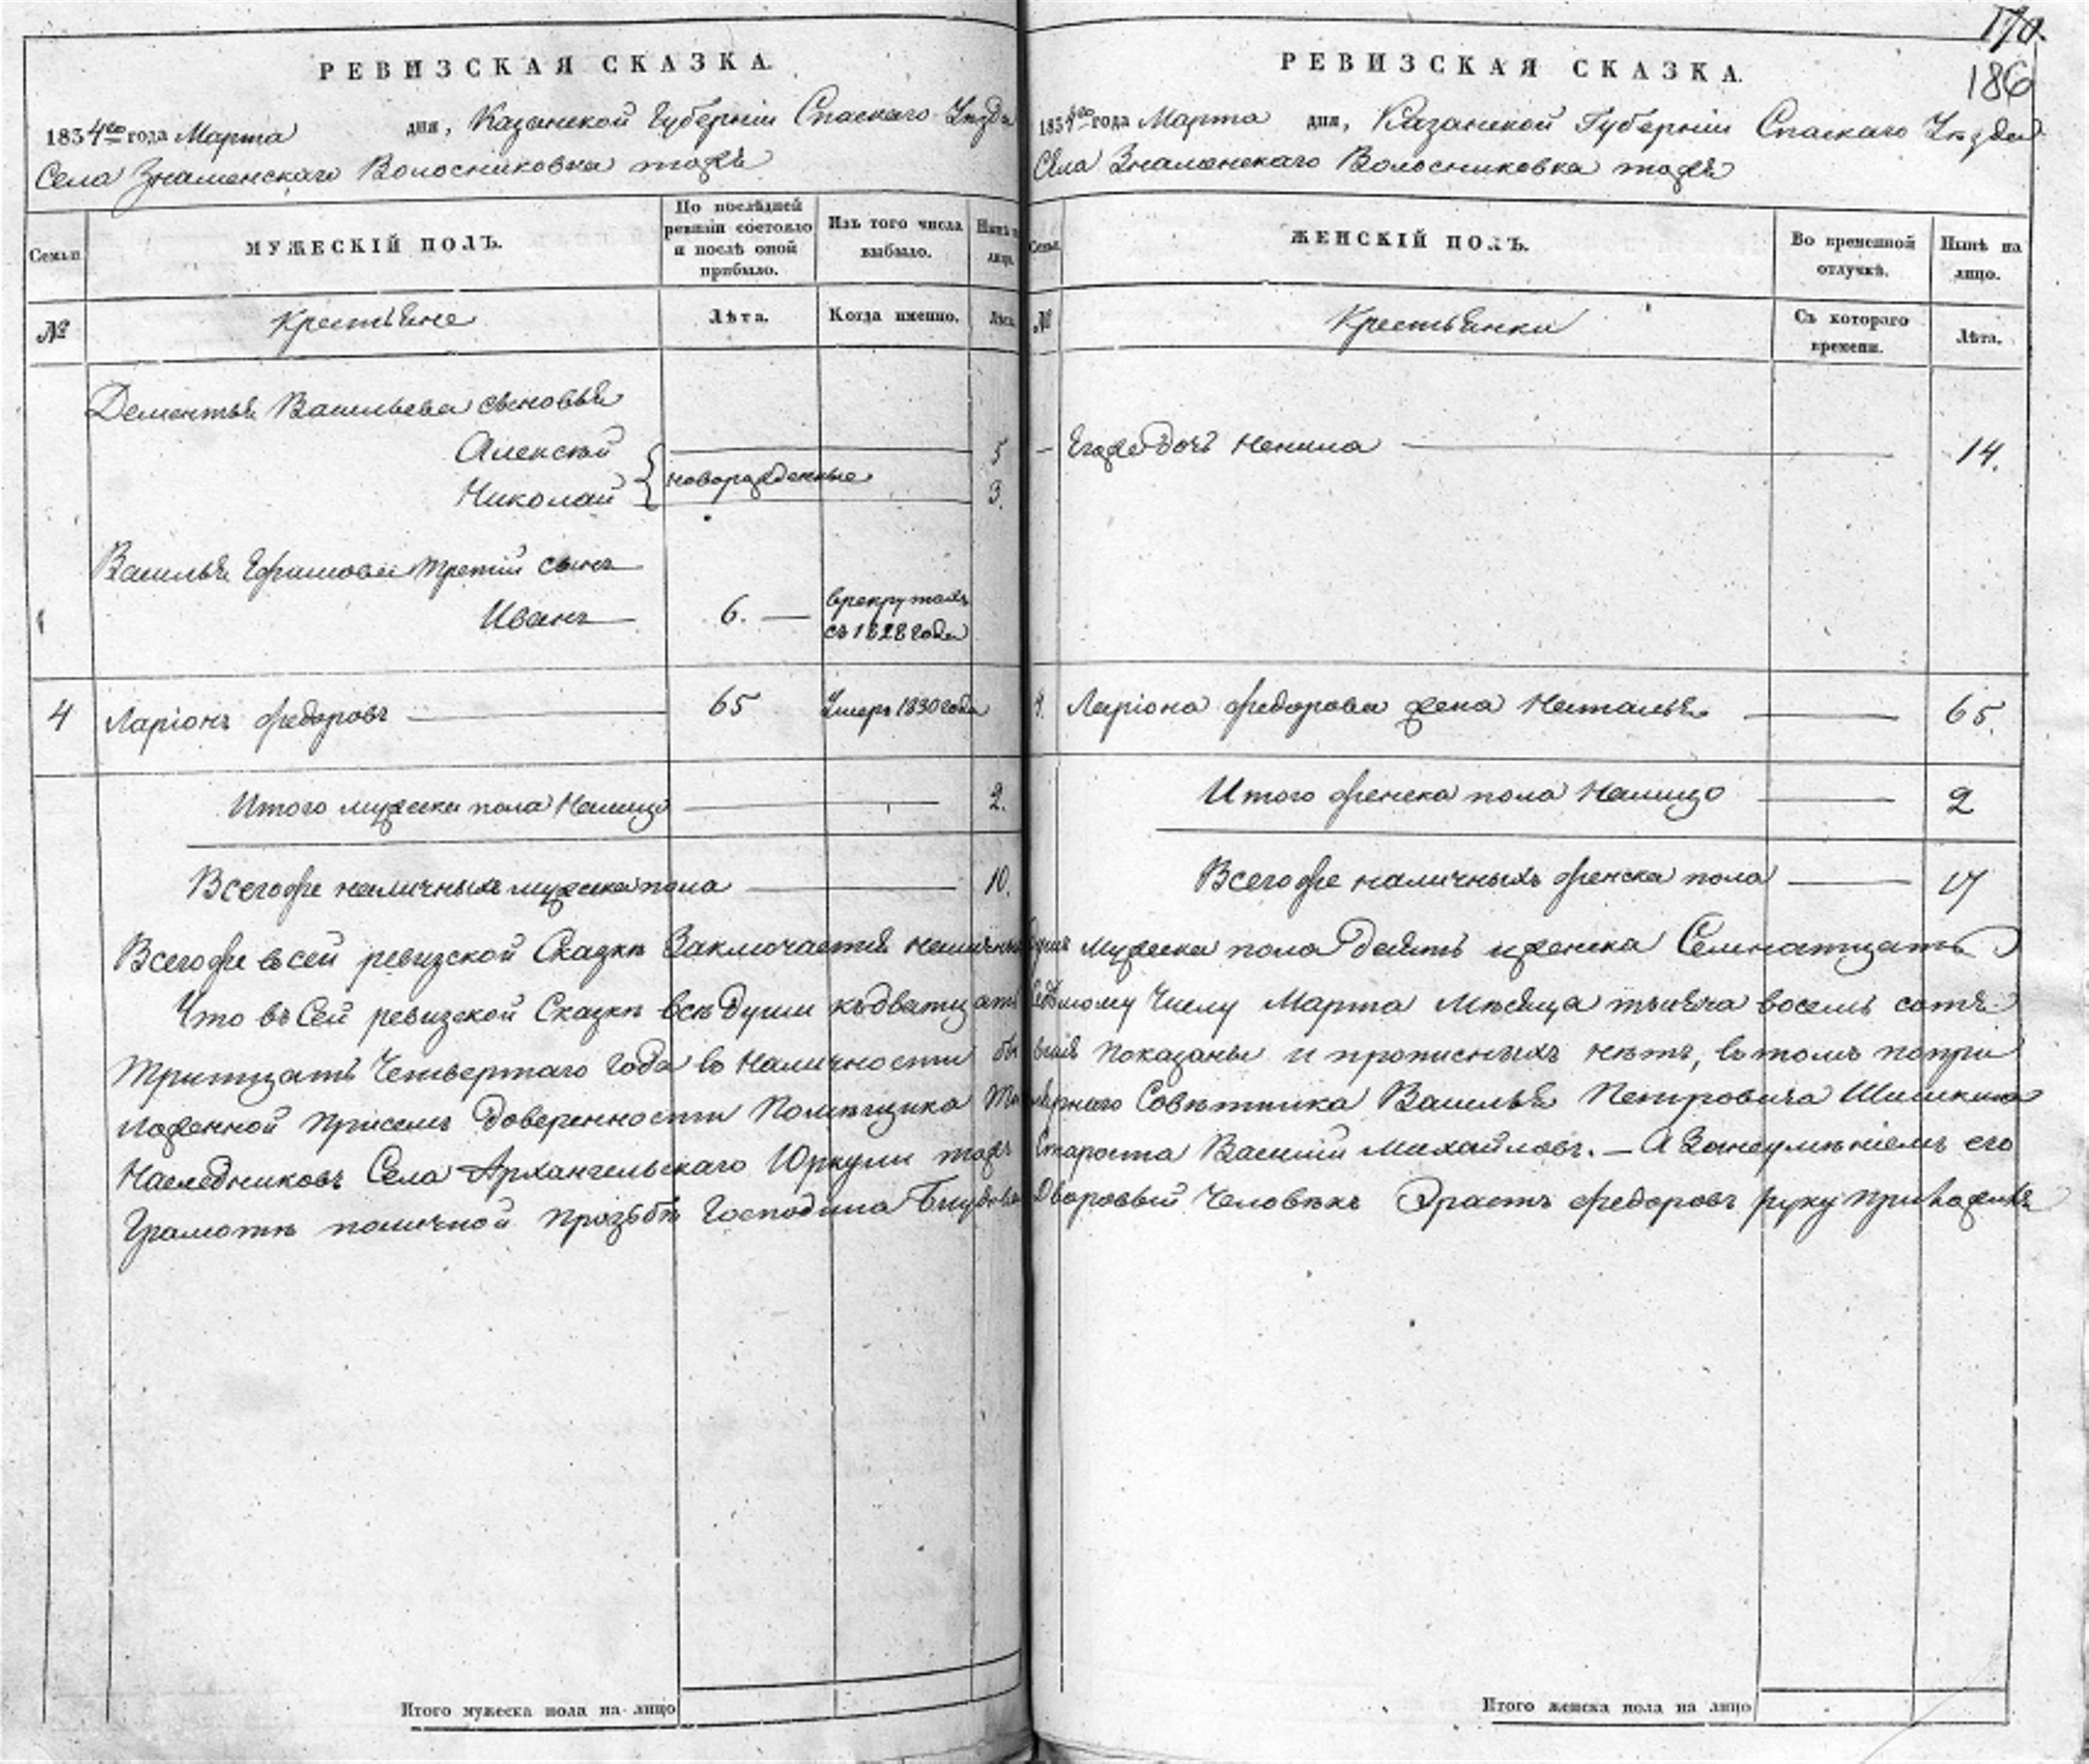 РЕВИЗСКАЯ СКАЗКА.
1834го года Марта дня, Казанской Губерніи Спаскаго Уѣзда
Села Знаменскаго Волосниковка тожъ
Семьи
МУЖЕСКІЙ ПОЛЪ.
По послѣдней ревизіи состояло и послѣ оной прибыло.
Изъ того числа выбыло.
Нынѣ на лицо.
№
Крестьяне
Лѣта.
Когда именно.
Лѣта.
Дементья Васильева сыновья
Алексѣй 5
новорожденные
Николай 3.
Василья Ефимова третій сынъ
Иванъ 6. в рекрутахъ съ 1828 года
4 Ларіонъ Федоровъ 65 Умеръ 1830 года
Итого мужеска пола Налицо 2.
Всего же наличныхъ мужеска пола 10.
170.
186
РЕВИЗСКАЯ СКАЗКА.
1834го года Марта дня, Казанской Губерніи Спаскаго Уѣзда
Села Знаменскаго Волосниковка тожъ
Семьи
ЖЕНСКІЙ ПОЛЪ.
Во временной отлучкѣ.
Нынѣ на лицо.
№
Крестьянки
Съ котораго времени.
Лѣта.
Егоже дочь Ненила 14.
4. Ларіона Федорова жена Наталья 65.
Итого женска пола Налицо 2
Всего же наличныхъ женска пола 17
Всего же въ сей ревизской Сказкѣ Заключается наличныхъ душъ Мужеска пола Десять и женска Семнатцать
Что въ Сей ревизской Сказкѣ всѣ Души къ дватцать седьмому Числу Марта Мѣсяца тысяча восемь сотъ
Тритцать Четвертаго года в Наличности бывшія показаны и прописныхъ нѣтъ, въ томъ по при
ложенной при семъ Доверенности Помѣщика Титулярнаго Совѣтника Василья Петровича Шишкина
Наследниковъ Села Архангельскаго Юркули тожъ Староста Василій Михайловъ. — А За неумѣніемъ его
Грамотѣ по личной прозьбѣ Господина Дворовый Человѣкъ Эрастъ Федоровъ руку приложилъ
Итого мужеска пола на лицо
Итого женска пола на лицо